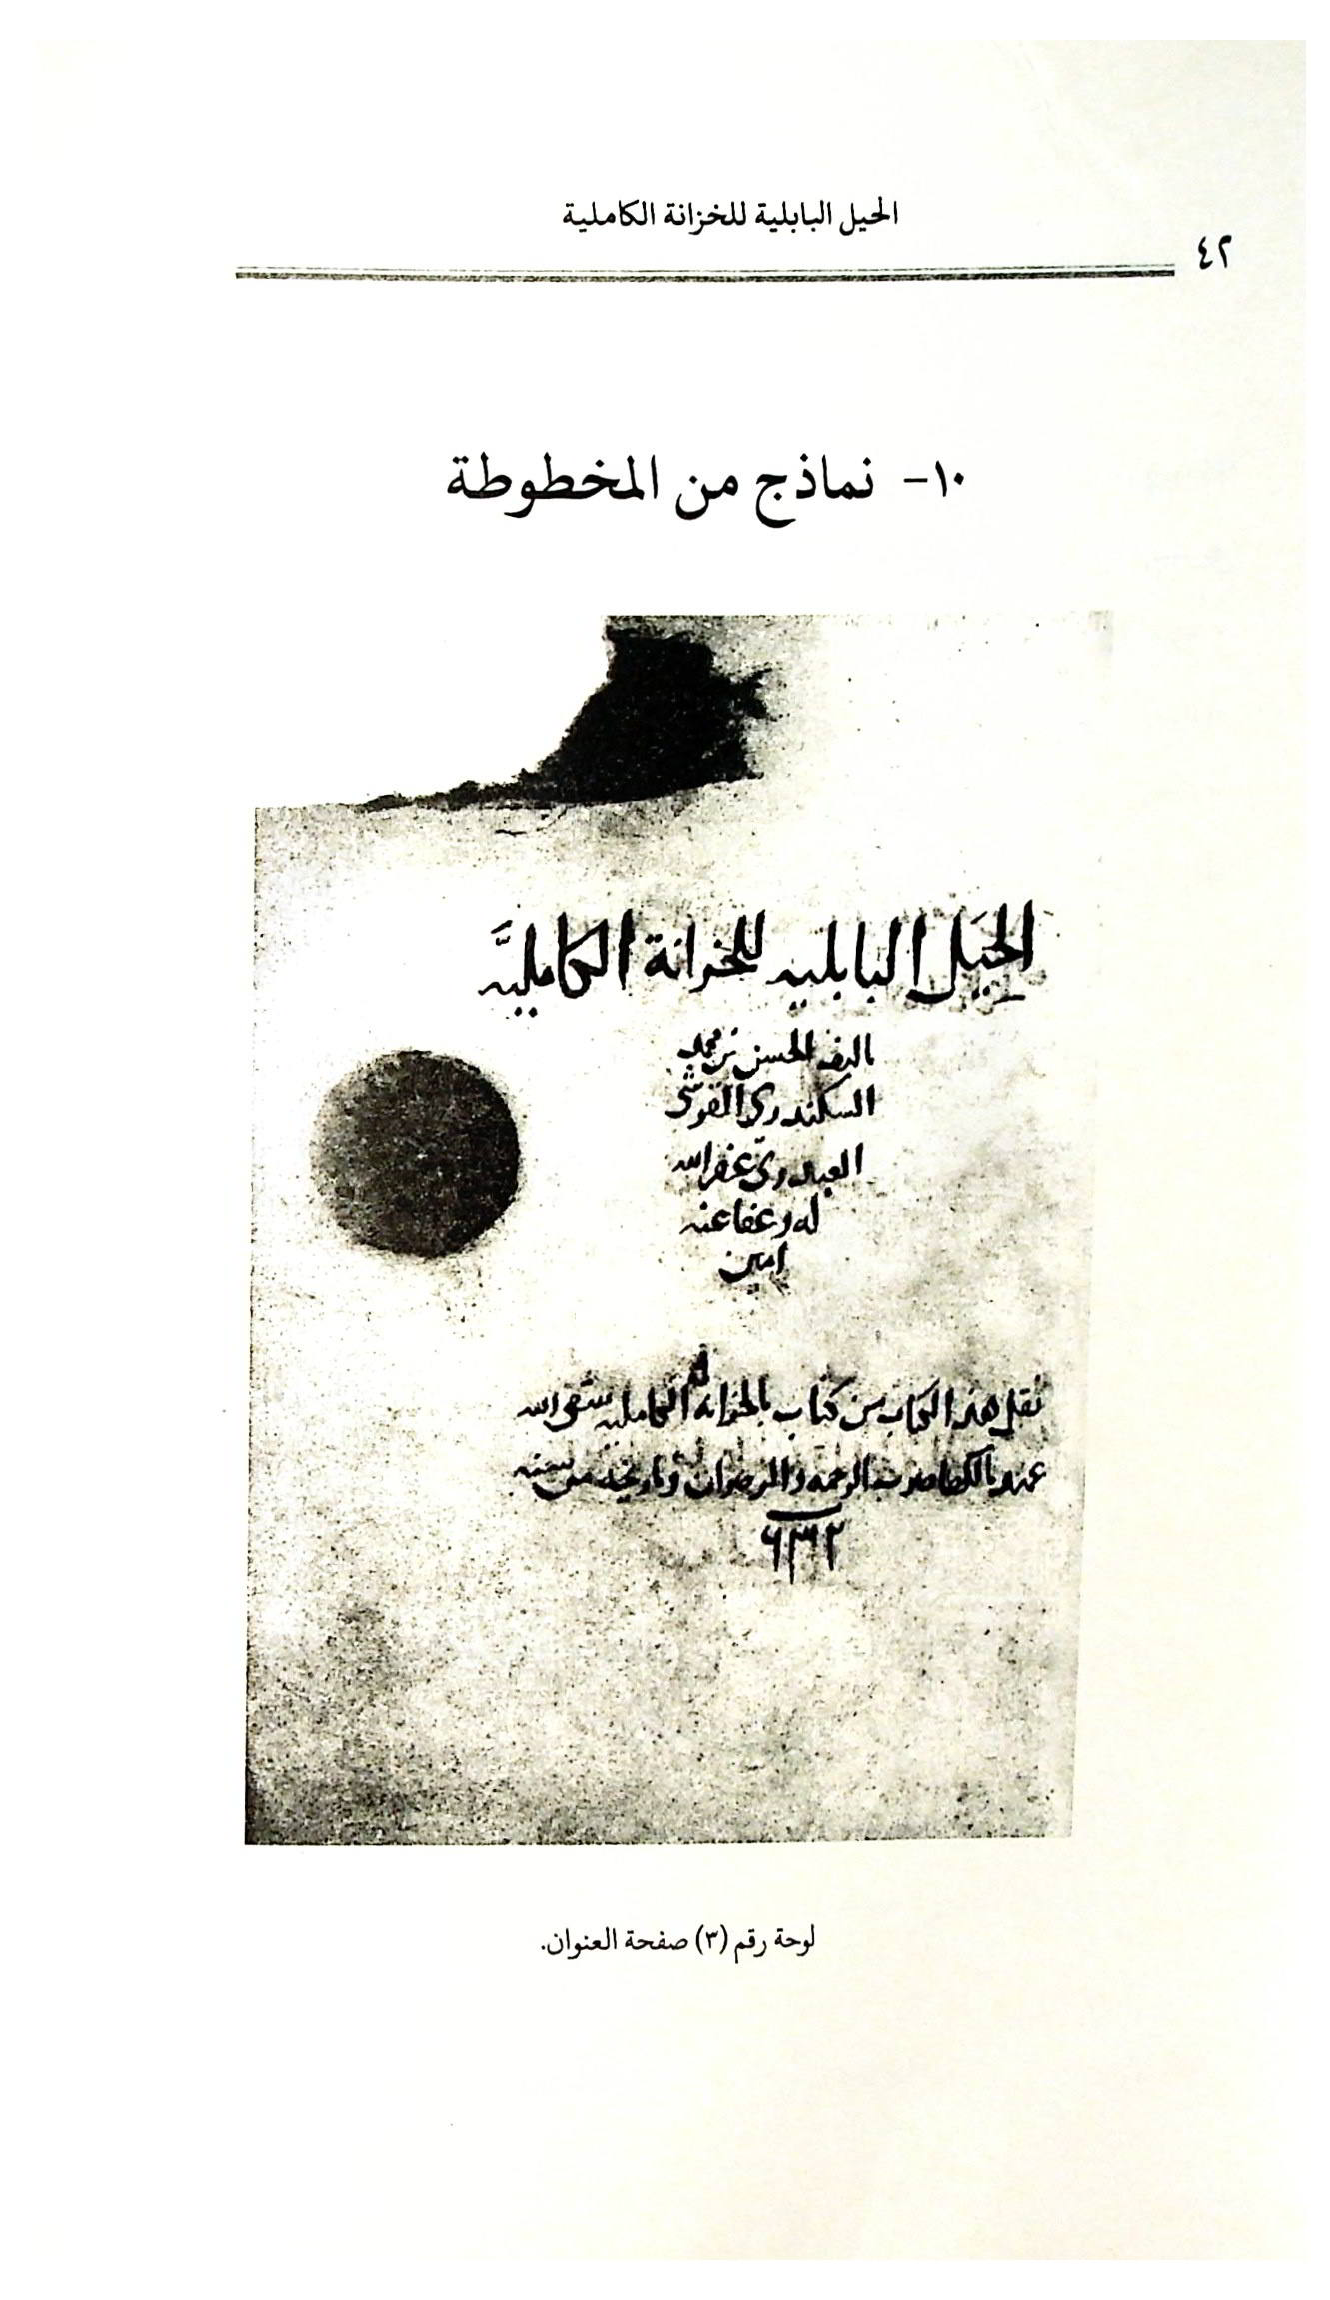 الحيل البابلية للخزانة الكاملية
٤٢
١٠- نماذج من المخطوطة
الحيَل البابليه للخزانة الكامليَّه
تاليف الحسن بن محمد
السكندري القرشي
العبدريّ غفر الله
له وعفا عنه
امين
نقل هذا الكتاب من كتاب بالخزانه الكامليه سقى الله
عهدها صوب الرحمه والرضوان وتاريخه من سنه
٦٣٢
لوحة رقم (٣) صفحة العنوان.